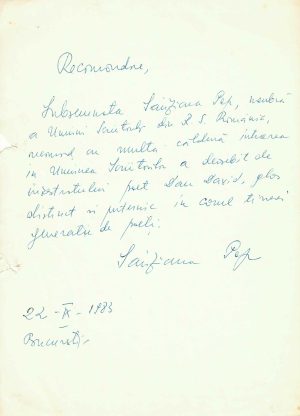 Recomandare,
Subsemnata Sânziana Pop, membră
a Uniunii Scriitorilor din R. S. România,
recomand cu multă căldură intrarea
in Uniunea Scriitorilor a deosebit de
inzestratului poet Dan David, glas
distinct si puternic in corul tinerei
generatii de poeti.
Sânziana Pop
22 - IX - 1983
Bucuresti.